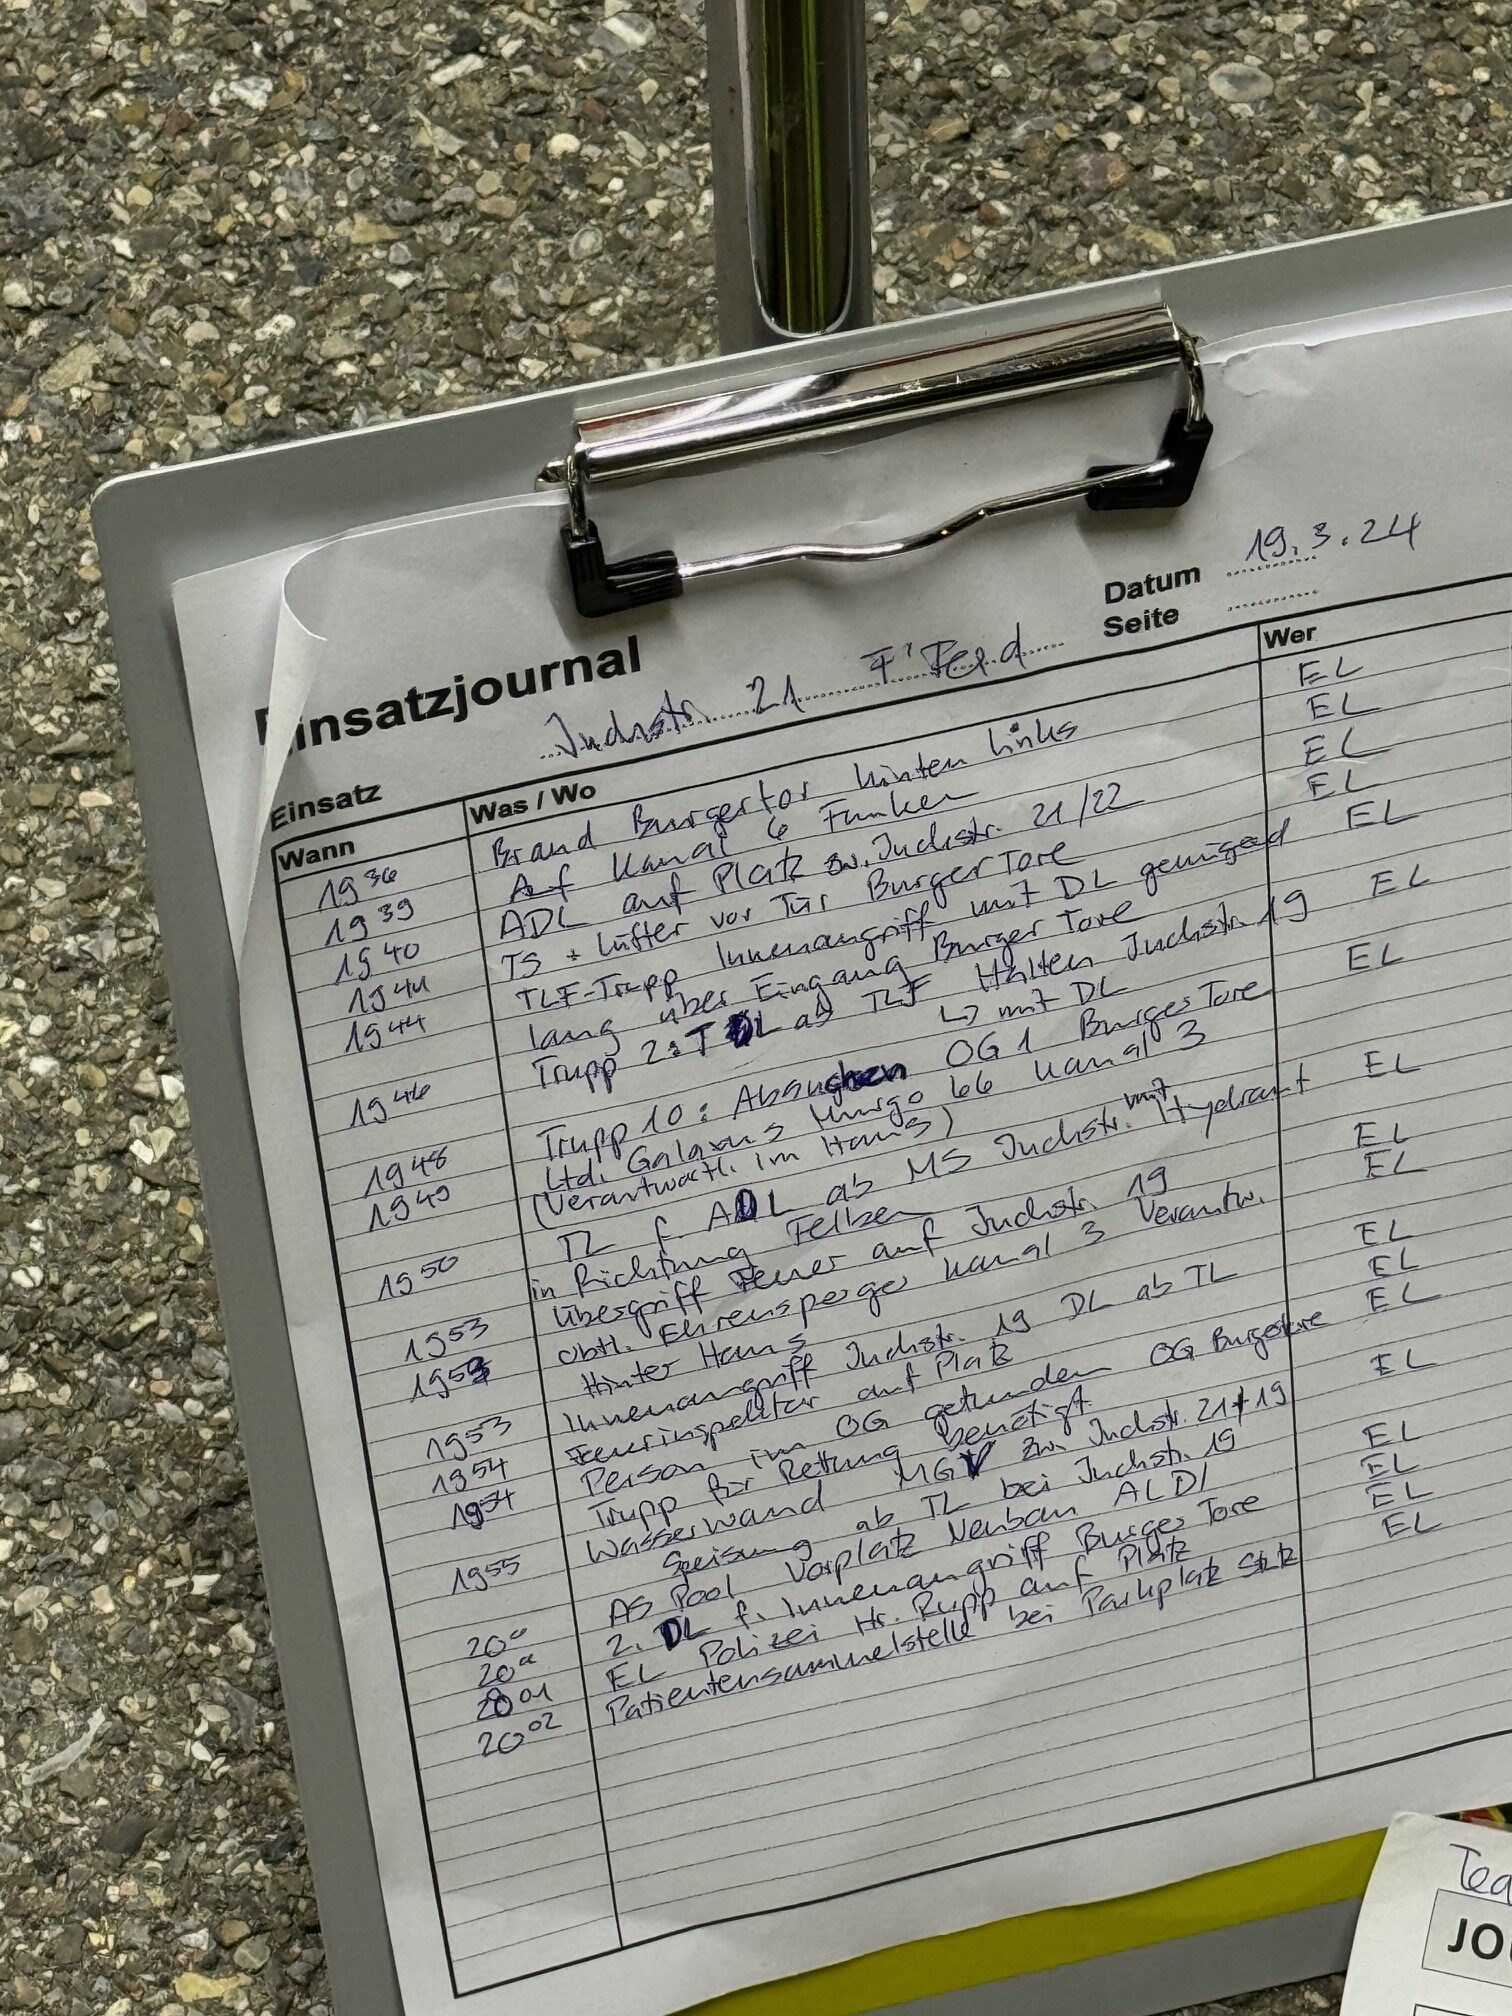 Einsatzjournal
Datum 19.3.24
Seite
Einsatz Juchstr. 21 F'Feld
Wann Was / Wo Wer
19 36 Brand Burgertor hinten links EL
19 39 Auf Kanal 6 Funken EL
19 40 ADL auf Platz zw. Juchstr. 21/22 EL
19 41 TS + Lüfter vor Tür Burger Tore EL
19 44 TLF-Trupp Innenangriff mit DL genügend EL
lang über Eingang Burger Tore
Trupp 2: TL ab TLF Halten Juchstr. 19 EL
19 46 ↳ mit DL
Trupp 10: Absuchen OG 1 Burger Tore EL
19 48 Ltd. Galaxus Hurgo 66 Kanal 3
19 49 (Verantwortl. im Haus)
TL f. ADL ab MS Juchstr. mit Hydrant EL
19 50 in Richtung Felben
Übergriff Feuer auf Juchstr. 19 EL
19 53 Obtl. Ehrensperger Kanal 3 Verantw. EL
19 53 Hinter Haus
19 53 Innenangriff Juchstr. 19 DL ab TL EL
19 54 Feuerinspektor auf Platz EL
19 54 Person im OG gefunden OG Burgertore EL
Trupp für Rettung benötigt
19 55 Wasserwand MGV zw. Juchstr. 21 + 19 EL
Speisung ab TL bei Juchstr. 19
AS Pool Vorplatz Neubau ALDI EL
20 2. DL f. Innenangriff Burger Tore EL
20 01 EL Polizei Hr. Rupp auf Platz EL
20 02 Patientensammelstelle bei Parkplatz EL
Tea
JO